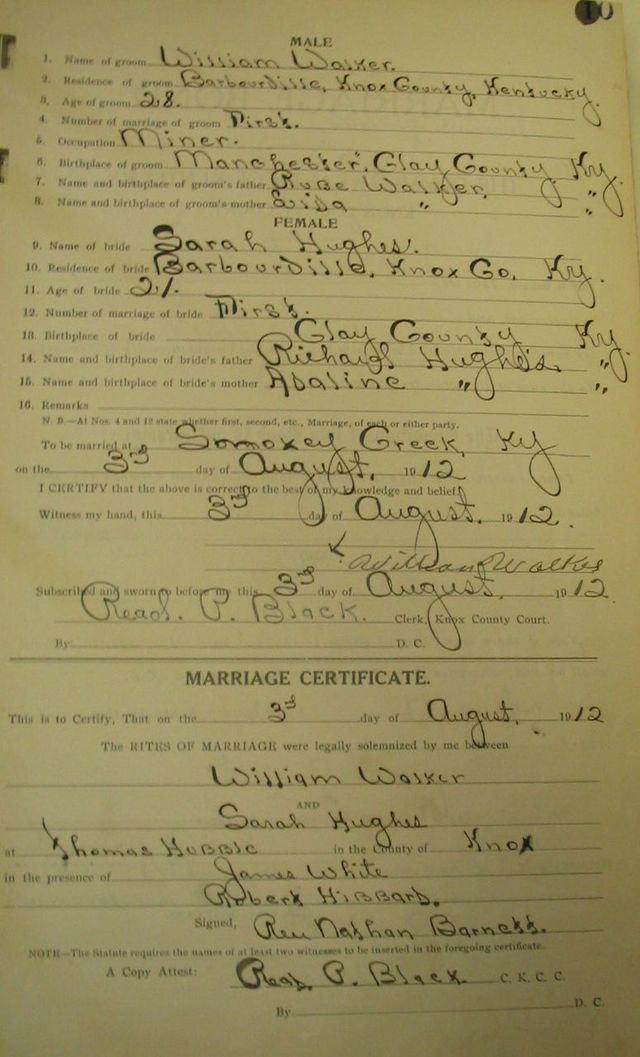 10
MALE
1. Name of groom William Walker.
2. Residence of groom Barbourville, Knox County, Kentucky.
3. Age of groom 28.
4. Number of marriage of groom First.
5. Occupation Miner.
6. Birthplace of groom Manchester, Clay County Ky.
7. Name and birthplace of groom's father Rube Walker, "
8. Name and birthplace of groom's mother " "
FEMALE
9. Name of bride Sarah Hughes.
10. Residence of bride Barbourville, Knox Co, Ky.
11. Age of bride 21.
12. Number of marriage of bride First.
13. Birthplace of bride Clay County Ky
14. Name and birthplace of bride's father Richard Hughes. "
15. Name and birthplace of bride's mother Adaline " "
16. Remarks
N. B.—At Nos. 4 and 12 state whether first, second, etc., Marriage, of each or either party.
To be married at Creek, Ky
on the 3rd day of August, 1912
I CERTIFY that the above is correct to the best of my knowledge and belief.
Witness my hand, this 3rd day of August, 1912.
x William Walker
Subscribed and sworn to before my this 3rd day of August, 1912.
Read. P. Black. Clerk, Knox County Court.
By D. C.
MARRIAGE CERTIFICATE.
This is to Certify, That on the 3rd day of August, 1912
The RITES OF MARRIAGE were legally solemnized by me between
William Walker
AND
Sarah Hughes
at Thomas Hubbs in the County of Knox
in the presence of James White
Robert Hibbard.
Signed, Rev Nathan Barnett.
NOTE—The Statute requires the names of at least two witnesses to be inserted in the foregoing certificate.
A Copy Attest: Read. P. Black C. K. C. C.
By D. C.